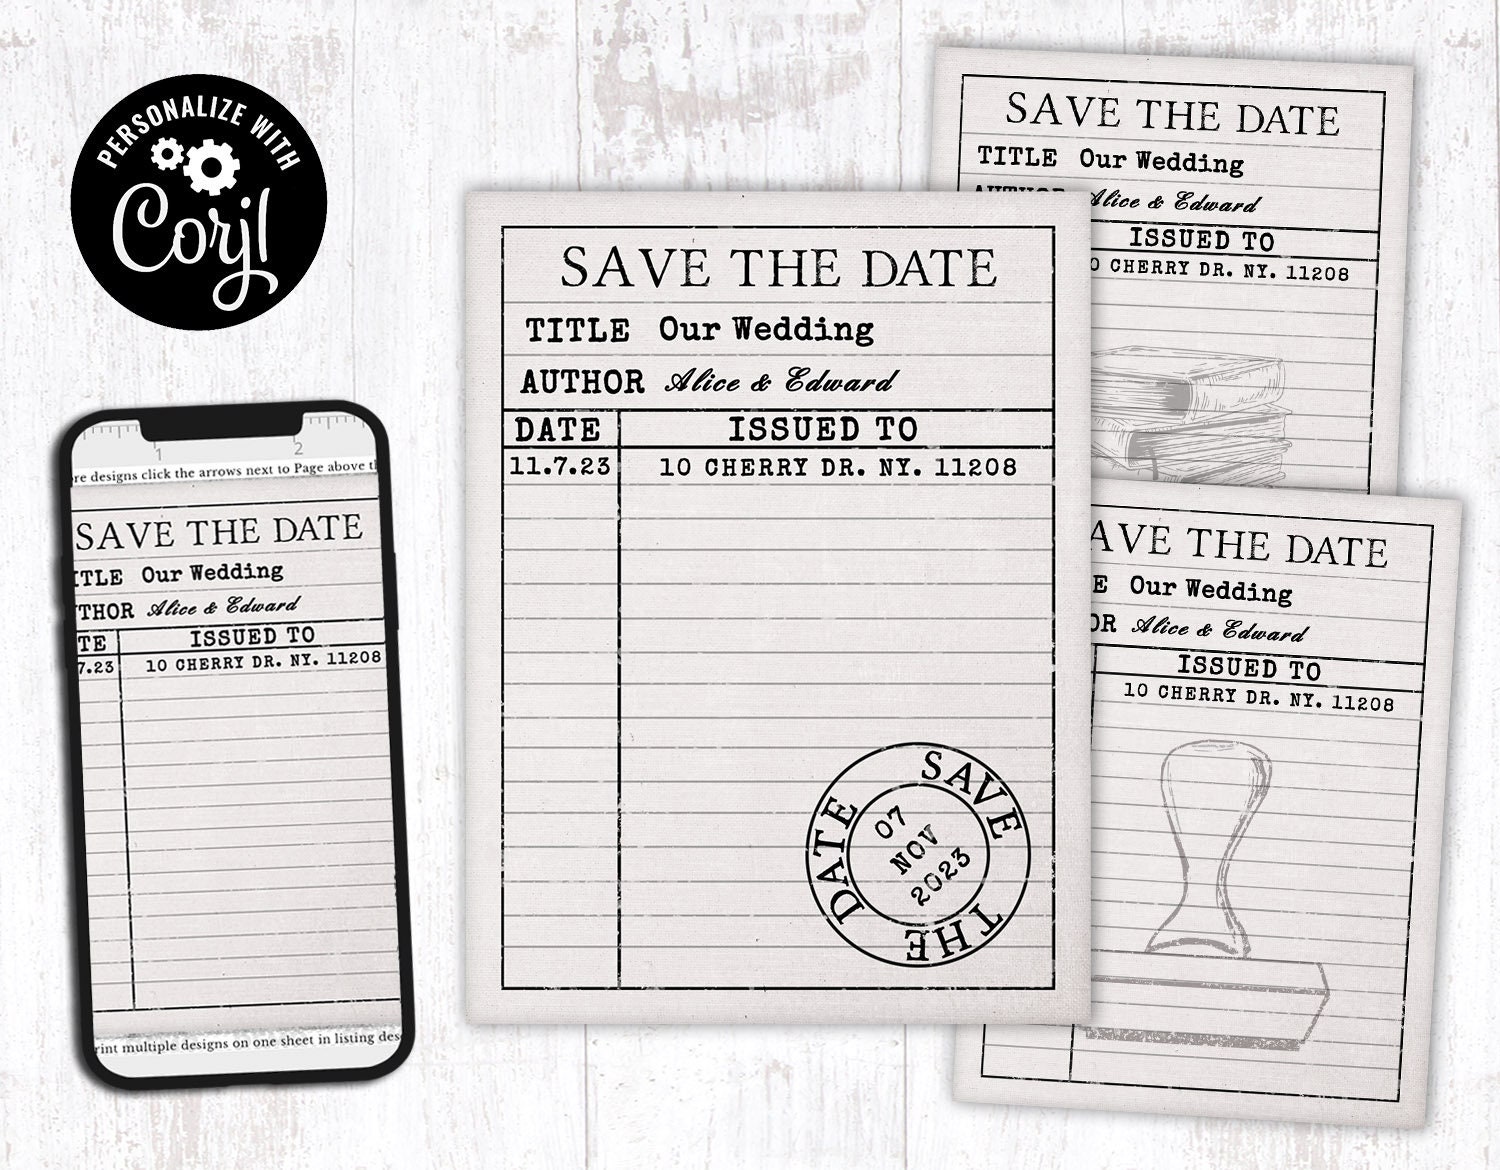 PERSONALIZE WITH
Corjl
1 2
re designs click the arrows next to Page above t
SAVE THE DATE
ITLE Our Wedding
THOR Alice & Edward
TE ISSUED TO
7.23 10 CHERRY DR. NY. 11208
rint multiple designs on one sheet in listing des
SAVE THE DATE
TITLE Our Wedding
AUTHOR Alice & Edward
DATE ISSUED TO
11.7.23 10 CHERRY DR. NY. 11208
SAVE THE DATE
07
NOV
2023
SAVE THE DATE
TITLE Our Wedding
AUTHOR Alice & Edward
ISSUED TO
0 CHERRY DR. NY. 11208
AVE THE DATE
E Our Wedding
OR Alice & Edward
ISSUED TO
10 CHERRY DR. NY. 11208